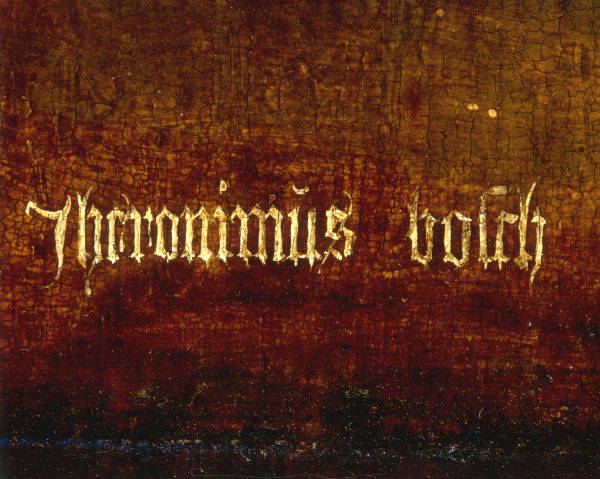 Jheronimŭs bosch